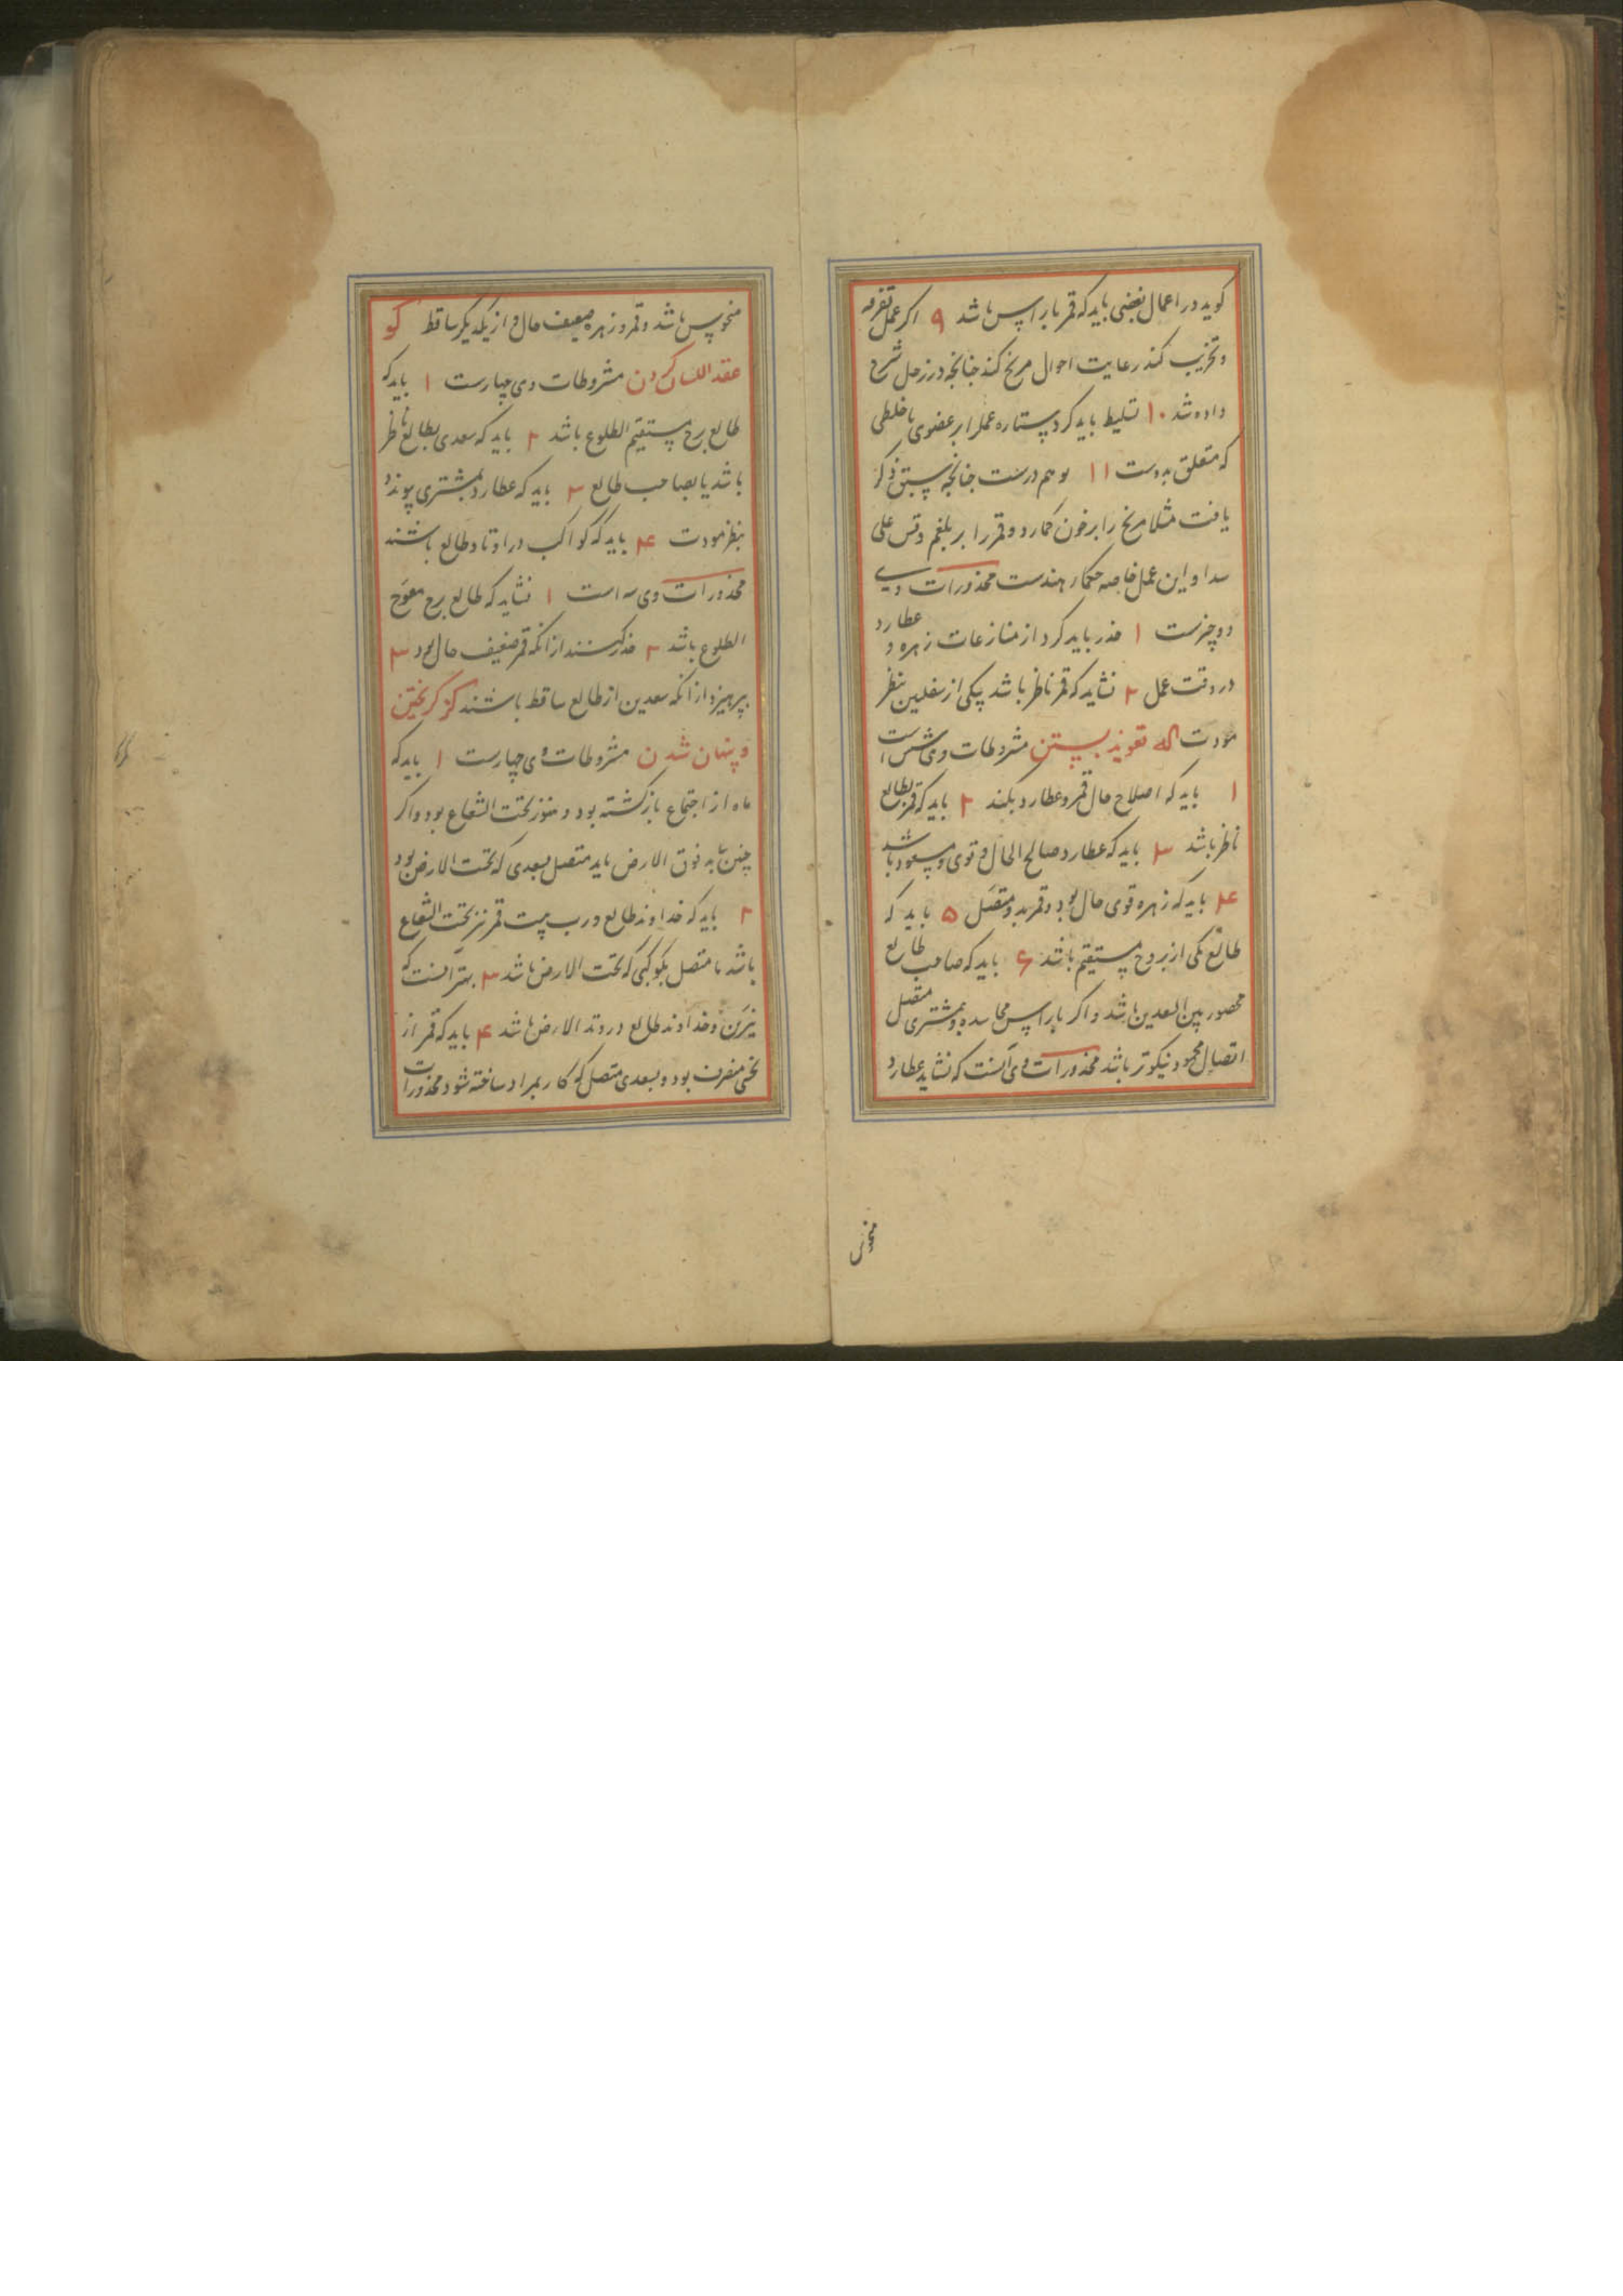 کوید در اعمال بغضی باید که قمر با راس باشد ۹ اکر عمل تفرقه
و تخریب کند رعایت احوال مریخ کند جنانجه در زحل شرح
داده شد ۱۰ تسلیط باید کرد ستاره عمل را بر عضوی یا خلطی
که متعلق بدوست ۱۱ و هم درست جنانجه سبق ذکر
یافت مثلا مریخ را بر خون کمارد و قمر را بر بلغم و قس علی
هذا و این عمل خاصه حکماء هندست محذورات وی
دو چیزست ۱ حذر باید کرد از منازعات زهره و عطارد
در وقت عمل ۲ نشاید که قمر ناظر باشد بیکی از سفلیین بنظر
مودت که تعویذ بستن مشروطات وی شش است
۱ باید که اصلاح حال قمر و عطارد بکند ۲ باید که قمر بطالع
ناظر باشد ۳ باید که عطارد صالح الحال و قوی و مسعود باشد
۴ باید که زهره قوی حال بود و قمر بدو متصل ۵ باید که
طالع یکی از بروج مستقیم باشد ۶ باید که صاحب طالع
محصور بین السعدین باشد و اکر با راس مجاسده و بمشتری متصل
اتصال محمود نیکوتر باشد محذورات وی آنست که نشاید عطارد
منحوس
منحوس باشد و قمر و زهره ضعیف حال و از یکدیکر ساقط کو
عقد اللسان کردن مشروطات وی چهارست ۱ باید که
طالع برج مستقیم الطلوع باشد ۲ باید که سعدی بطالع ناظر
باشد یا بصاحب طالع ۳ باید که عطارد بمشتری پیوندد
بنظر مودت ۴ باید که کواکب در اوتاد طالع باشند
محذورات وی سه است ۱ نشاید که طالع برج معوج
الطلوع باشد ۲ حذر کنند از انکه قمر ضعیف حال بود ۳
بپرهیزد از انکه سعدین از طالع ساقط باشند کز کریختن
و پنهان شدن مشروطات وی چهارست ۱ باید که
ماه از اجتماع بازکشته بود و هنوز تحت الشعاع بود و اکر
چنین نباشد فوق الارض باید متصل بسعدی که تحت الارض بود
۲ باید که خداوند طالع و رب بیت قمر نیز تحت الشعاع
باشد یا متصل بکوکبی که تحت الارض باشد ۳ بهتر آنست که
نیرین و خداوند طالع در وتد الارض باشد ۴ باید که قمر از
نحسی منصرف بود و بسعدی متصل که کار بمراد ساخته شود محذورات